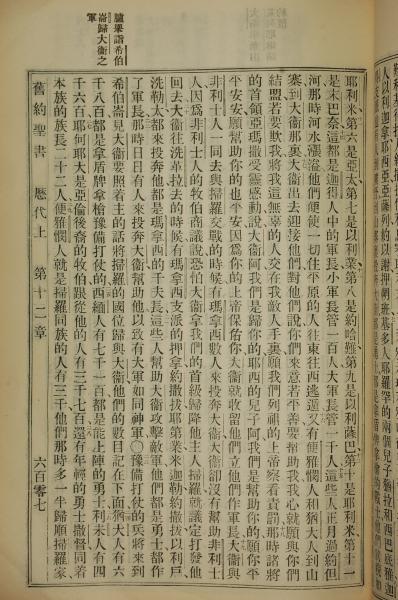 人以利迦拿耶西亞亞薩列約以謝押朔班基多人耶羅罕的兩個兒子猶拉和西巴底雅迦
臚舉諸希伯
崙歸大衛之
軍
耶利米、第六是亞太、第七是以利業、第八是約哈難、第九是以利薩巴、第十是耶利米、第十一
是末巴奈、這都是迦得人中的軍長、小軍長管一百人大軍長管一千人、這些人正月過約但
河、那時河水漲溢、他們便使一切住平原的人往東往西逃遁、又有便雅憫人和猶大人到山
寨到大衛那裏、大衛出去迎接他們、對他們說、你們來意若平善、要幫助我、我心就願與你們
結盟、若要欺我、將我這無辜的人交在我敵人手裏、願我們列祖的上帝察看責罰、那時諸將
的首領亞瑪撒受靈感動說、大衛阿、我們是歸你的、耶西的兒子阿、我們是幫助你的、願你平
平安安、願幫助你的也平安、因爲你的上帝保佑你、大衛就收留他們、立他們作軍長、大衛與
非利士人一同去與掃羅交戰的時候、有瑪拿西數人來投奔大衛、大衛卻沒有幫助非利士
人、因爲非利士人的牧伯商議說、恐怕大衛拿我們的首級歸降他主人掃羅、就議定打發他
回去、大衛往洗革拉去的時候、有瑪拿西支派的押拿、約撒拔、耶第業、米迦勒、約撒拔、以利戶、
洗勒太、都來投奔他、都是瑪拿西的千夫長、這些人幫助大衛攻擊敵軍、他們都是勇士、都作
了軍長、那時日日有人來投奔大衛幫助他、以致有大軍如同神軍、〇豫備打仗的兵將來到
希伯崙見大衛、要照着主的話將掃羅的國位歸與大衛、他們的數目記在下面、猶大人有六
千八百、都是拿盾牌拿槍豫備打仗的、西緬人有七千一百、都是能上陣的勇士、利未人有四
千六百、耶何耶大是亞倫後裔的牧伯、跟從他的人有三千七百、還有年輕的勇士撒督、同着
本族的族長二十二人、便雅憫人就是掃羅同族的人有三千、他們那時多一半歸順掃羅家
舊約聖書 歷代上 第十二章 六百零七